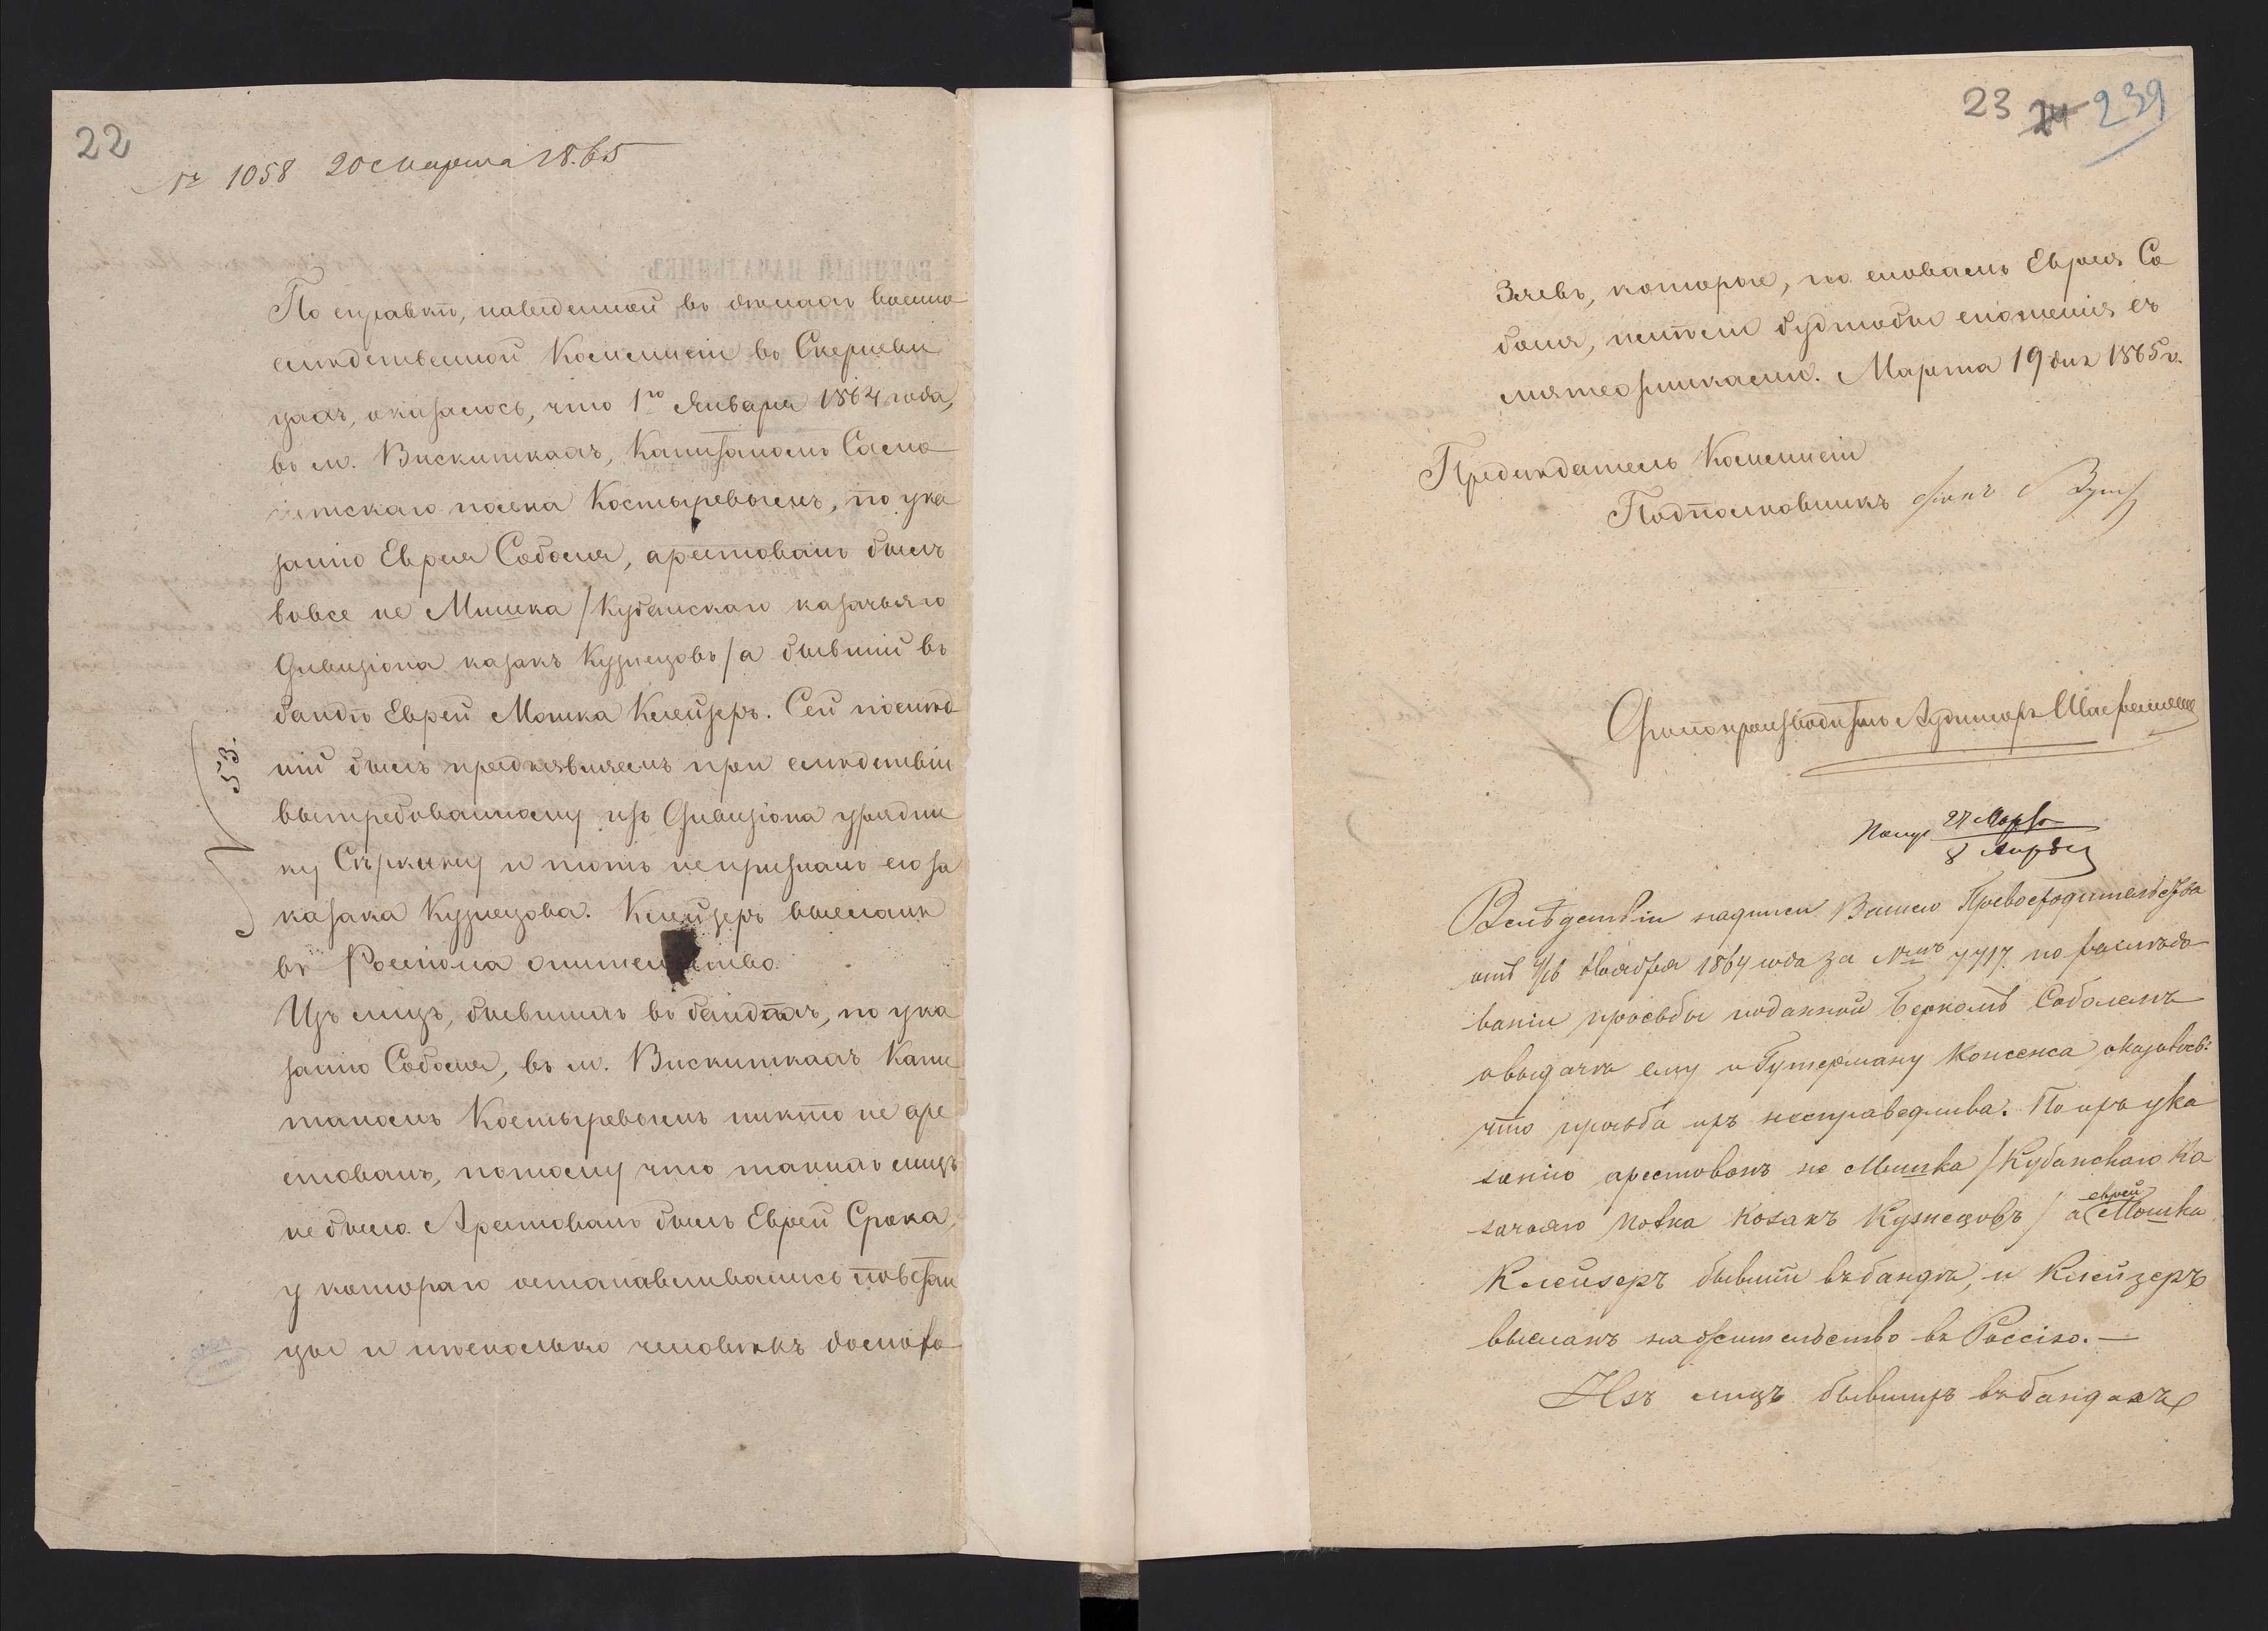 22
№ 1058 20 Марта 1865
По справкѣ, наведенной въ дѣлахъ военно
слѣдственной Коммисіи въ Скерневи
цахъ, оказалось, что 1го Января 1864 года,
въ м. Вискиткахъ, Капитаномъ Само
гитскаго полка Костыревымъ, по ука
занію Еврея Соболя, арестованъ былъ
вовсе не Мишка /Кубанскаго казачьяго
Дивизіона казакъ Кузнецовъ/ а бывшій въ
бандѣ Еврей Мошка Клейзеръ. Сей послѣд
ній былъ предъявляемъ при слѣдствіи
вытребованному изъ Дивизіона урядни
ку Сѣркину и тотъ не призналъ его за
казака Кузнецова. Клейзеръ высланъ
въ Россію на жительство.
Изъ лицъ, бывшихъ въ бандахъ, по ука
занію Соболя, въ м. Вискиткахъ Капи
таномъ Костыревымъ никто не аре
стованъ, потому что такихъ лицъ
не было. Арестованъ былъ Еврей Срока,
у котораго останавливались повстан
цы и нѣсколько человѣкъ домохо
53.
23 24 239
зяевъ, которые, по словамъ Еврея Со
боля, имѣли будтобы сношенія съ
мятежниками. Марта 19 дня 1865 г.
Предсѣдатель Коммисіи
Подполковникъ фонъ
Дѣлопроизводитель Аудиторъ
Получ 27 Марта
8 Апрѣля
Вслѣдствіи надписи Вашего Превосходительства
отъ 4/16 Ноября 1864 года за №мъ 7717 по разслѣдо
ваніи просьбы поданной Беркомъ Соболемъ
о выдачѣ ему и Гутерману Консенса, оказалось:
что просьба ихъ несправедлива. По ихъ ука
занію арестованъ не Мишка /Кубанскаго Ка
зачьяго полка козакъ Кузнецовъ/ а еврей Мошка
Клейзеръ бывшій въ бандѣ, и Клейзеръ
высланъ на жительство въ Россію.—
Изъ лицъ бывшихъ въ бандахъ